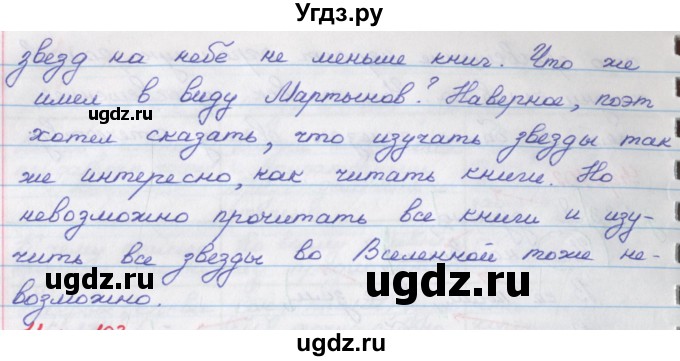 Угдз.ру
звезд на небе не меньше книг. Что же
имел в виду Мартынов? Наверное, поэт
хотел сказать, что изучать звезды так
же интересно, как читать книги. Но
невозможно прочитать все книги и изу-
чить все звезды во Вселенной тоже не-
возможно.
ugdz.ru
ugdz.ru
ugdz.ru
ugdz.ru
ugdz.ru